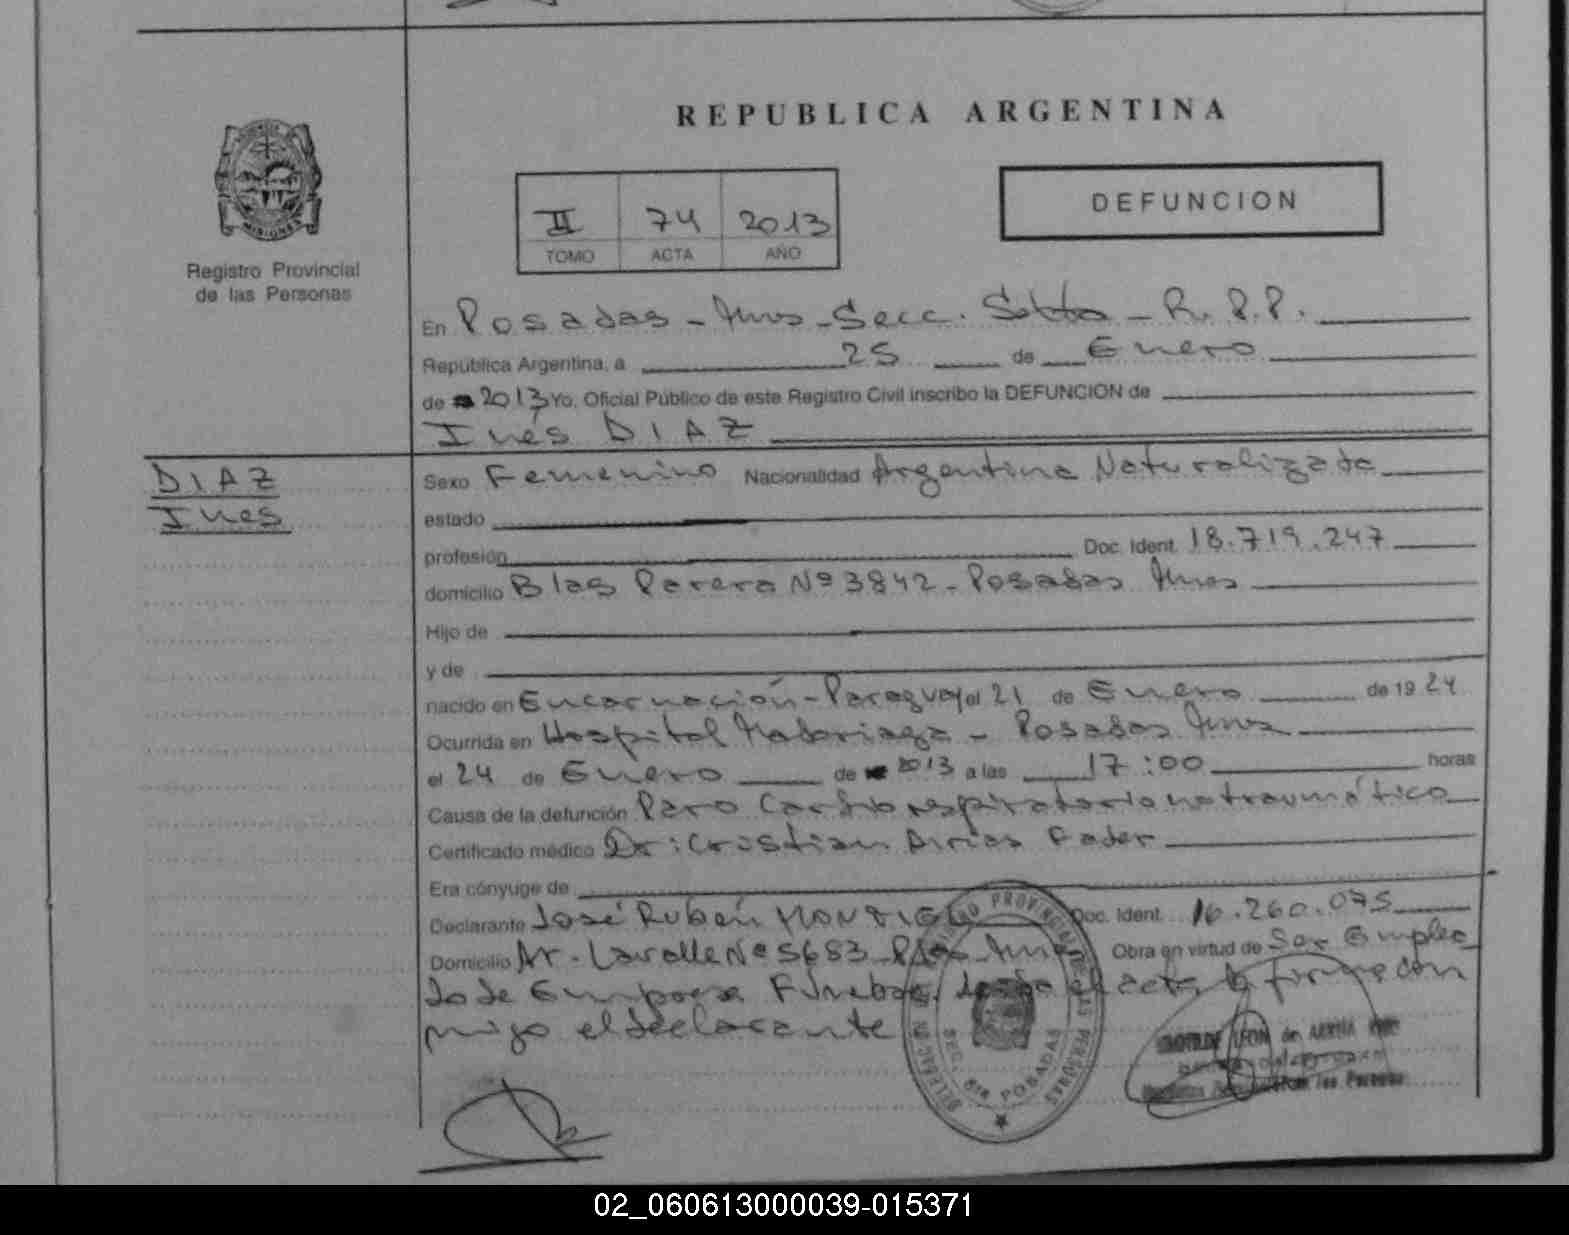 REPUBLICA ARGENTINA
MISIONES
Registro Provincial
de las Personas
II 74 2013
TOMO ACTA AÑO
DEFUNCION
En Posadas - Mnes - Secc. Sexta - R.P.P.
República Argentina, a 25 de Enero
de 2013 Yo, Oficial Público de este Registro Civil inscribo la DEFUNCION de
Inés DIAZ
DIAZ
Ines
Sexo Femenino Nacionalidad Argentina Naturalizada
estado
profesión Doc. Ident. 18.719.247
domicilio Blas Parera Nº 3842 - Posadas Mnes
Hijo de
y de
nacido en Encarnación - Paraguay el 21 de Enero de 1924
Ocurrida en Hospital Madariaga - Posadas Mnes
el 24 de Enero de 2013 a las 17:00 horas
Causa de la defunción Paro Cardiorespiratorio no traumático
Certificado médico Dr: Cristian Arias Fader
Era cónyuge de
Declarante José Rubén MONTIEL Doc. Ident. 16.260.075
Domicilio Av. Lavalle Nº 5683 - Pdas Mnes Obra en virtud de Ser Emplea
do de Empresa Fúnebre, leída el acta la firma con
migo el declarante
SEC. 6ta POSADAS
02_060613000039-015371